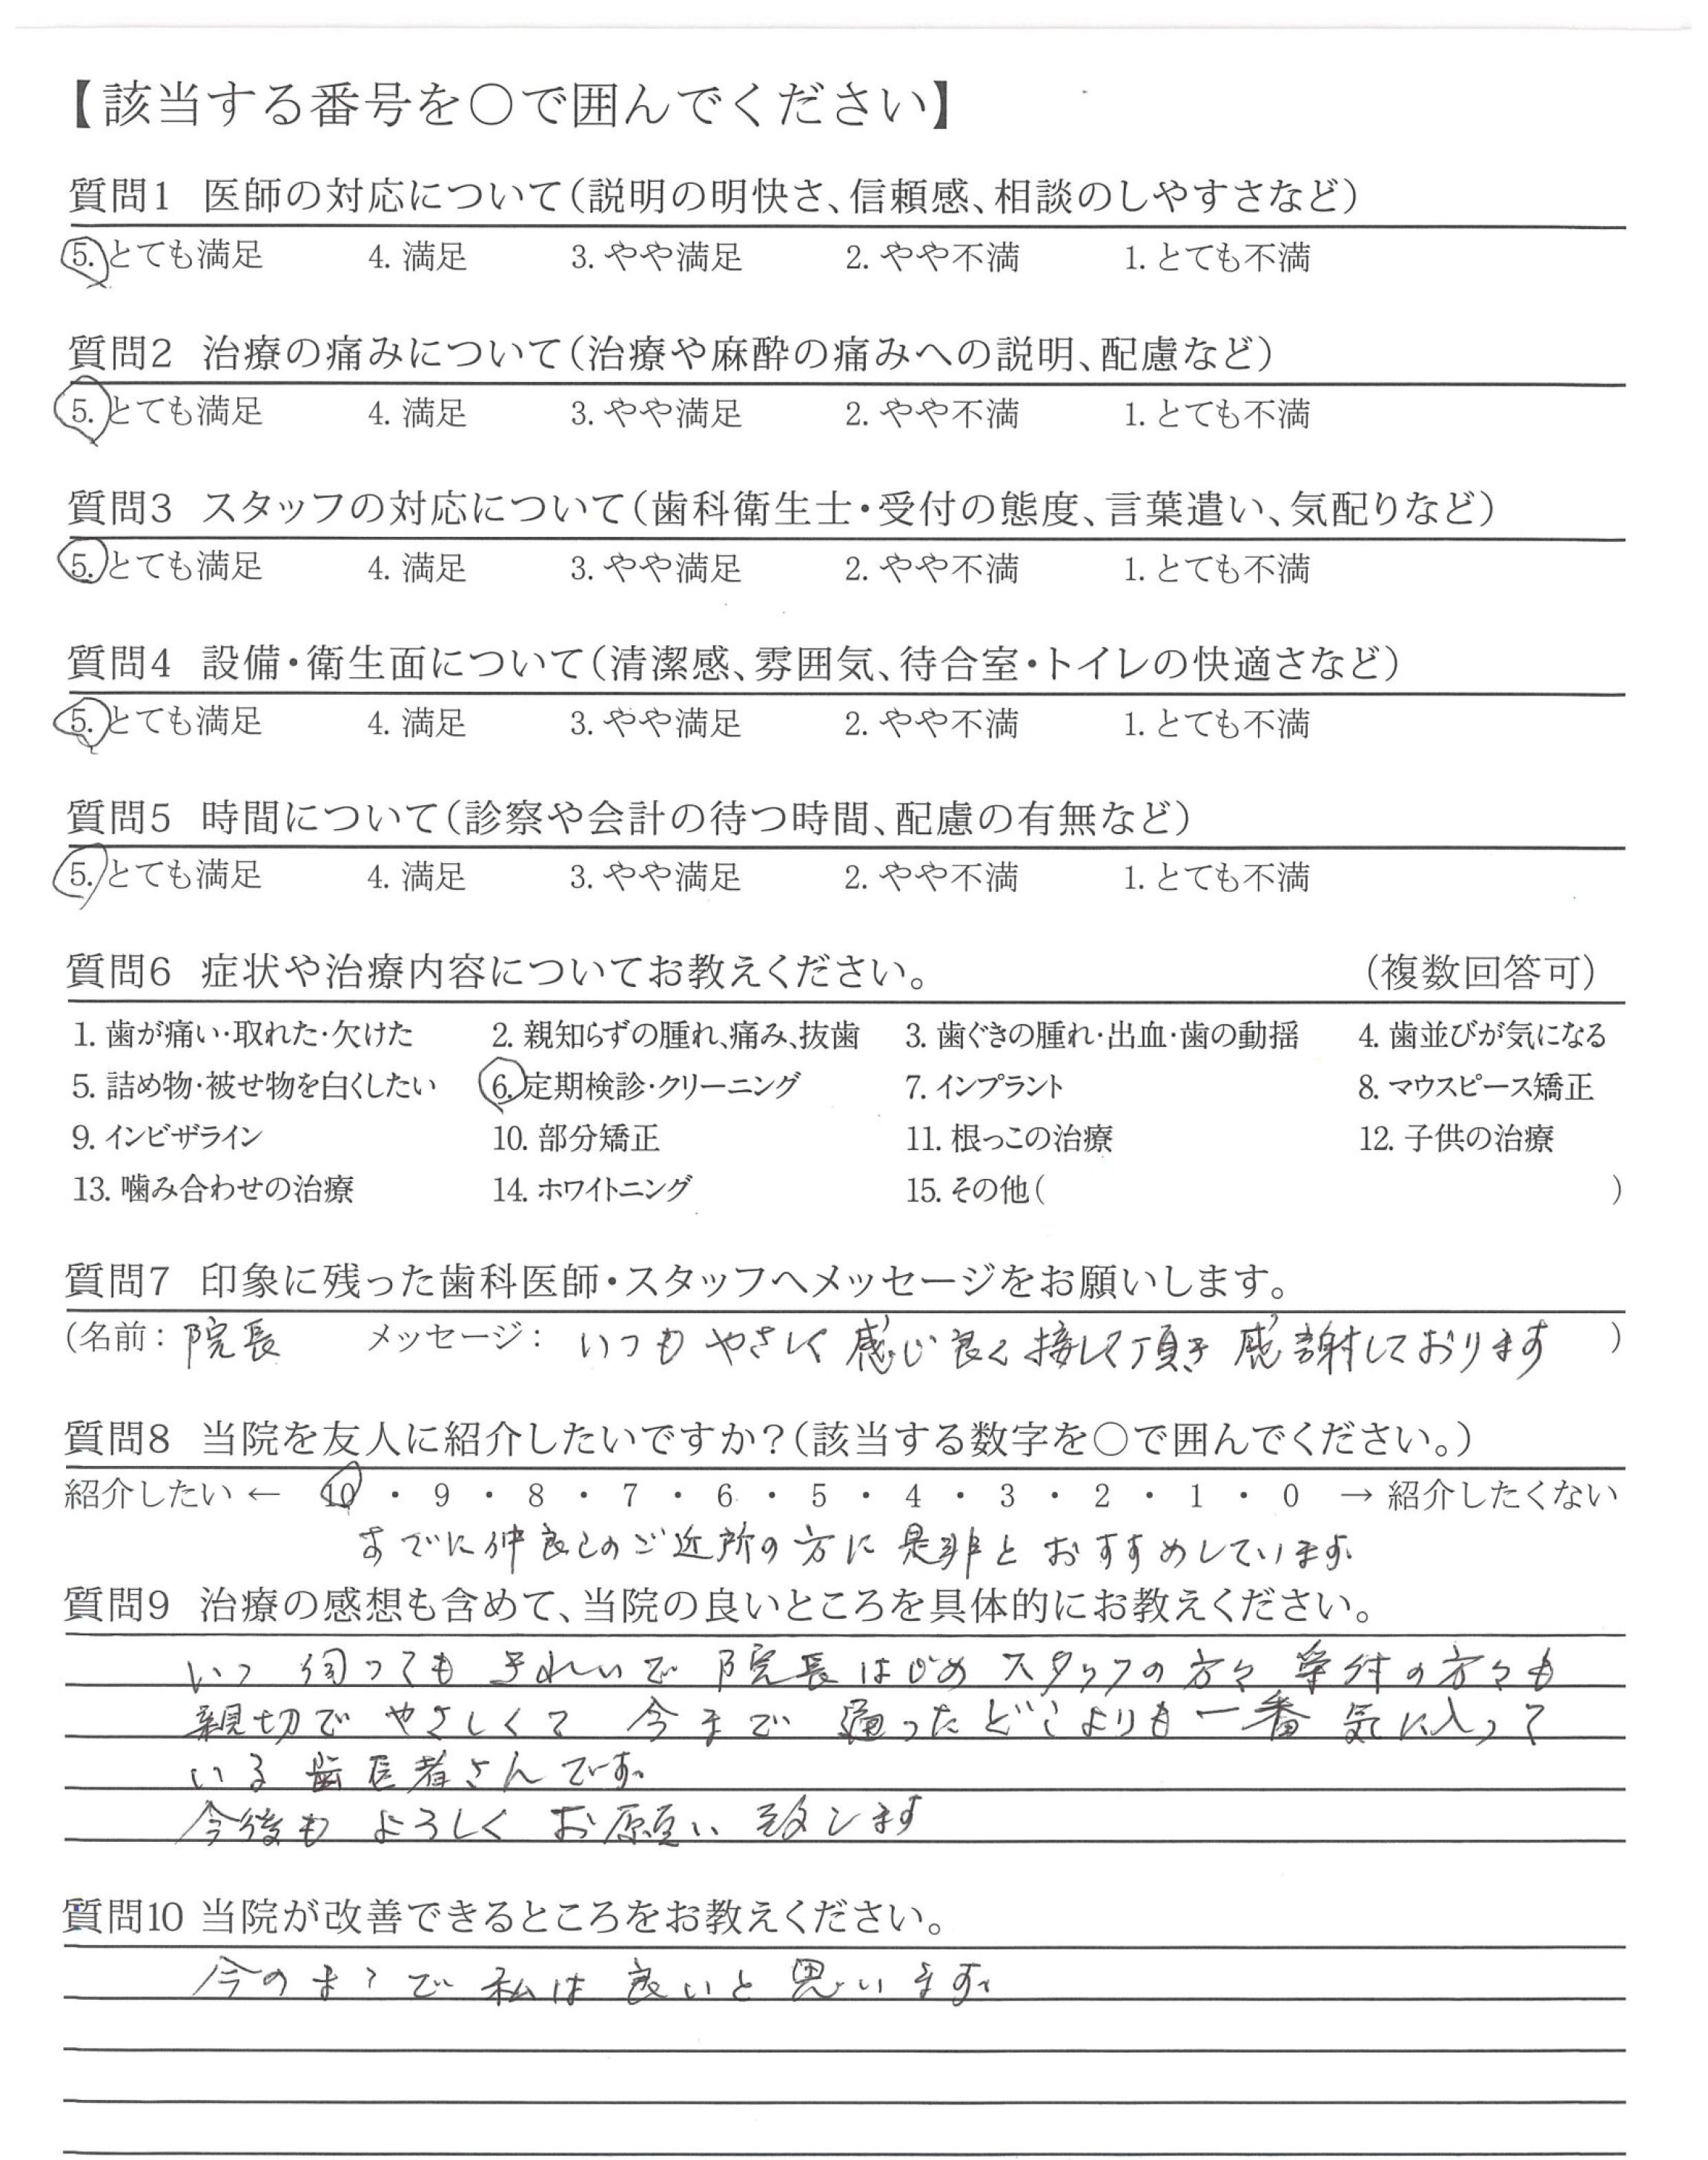 【該当する番号を○で囲んでください】
質問1 医師の対応について(説明の明快さ、信頼感、相談のしやすさなど)
5. とても満足 4. 満足 3. やや満足 2. やや不満 1. とても不満
質問2 治療の痛みについて(治療や麻酔の痛みへの説明、配慮など)
5. とても満足 4. 満足 3. やや満足 2. やや不満 1. とても不満
質問3 スタッフの対応について(歯科衛生士・受付の態度、言葉遣い、気配りなど)
5. とても満足 4. 満足 3. やや満足 2. やや不満 1. とても不満
質問4 設備・衛生面について(清潔感、雰囲気、待合室・トイレの快適さなど)
5. とても満足 4. 満足 3. やや満足 2. やや不満 1. とても不満
質問5 時間について(診察や会計の待つ時間、配慮の有無など)
5. とても満足 4. 満足 3. やや満足 2. やや不満 1. とても不満
質問6 症状や治療内容についてお教えください。 (複数回答可)
1. 歯が痛い・取れた・欠けた 2. 親知らずの腫れ、痛み、抜歯 3. 歯ぐきの腫れ・出血・歯の動揺 4. 歯並びが気になる
5. 詰め物・被せ物を白くしたい 6. 定期検診・クリーニング 7. インプラント 8. マウスピース矯正
9. インビザライン 10. 部分矯正 11. 根っこの治療 12. 子供の治療
13. 噛み合わせの治療 14. ホワイトニング 15. その他( )
質問7 印象に残った歯科医師・スタッフへメッセージをお願いします。
(名前: 院長 メッセージ: いつも やさしく 感じ良く 接して頂き 感謝しております )
質問8 当院を友人に紹介したいですか?(該当する数字を○で囲んでください。)
紹介したい ← 10 ・ 9 ・ 8 ・ 7 ・ 6 ・ 5 ・ 4 ・ 3 ・ 2 ・ 1 ・ 0 → 紹介したくない
すでに仲良しのご近所の方に是非とおすすめしています。
質問9 治療の感想も含めて、当院の良いところを具体的にお教えください。
いつ 伺っても きれいで 院長はじめ スタッフの方々 受付の方々も
親切で やさしくて 今まで 通ったどこよりも一番 気に入って
いる 歯医者さんです。
今後も よろしく お願い 致します
質問10 当院が改善できるところをお教えください。
今のまゝで 私は 良いと 思います。